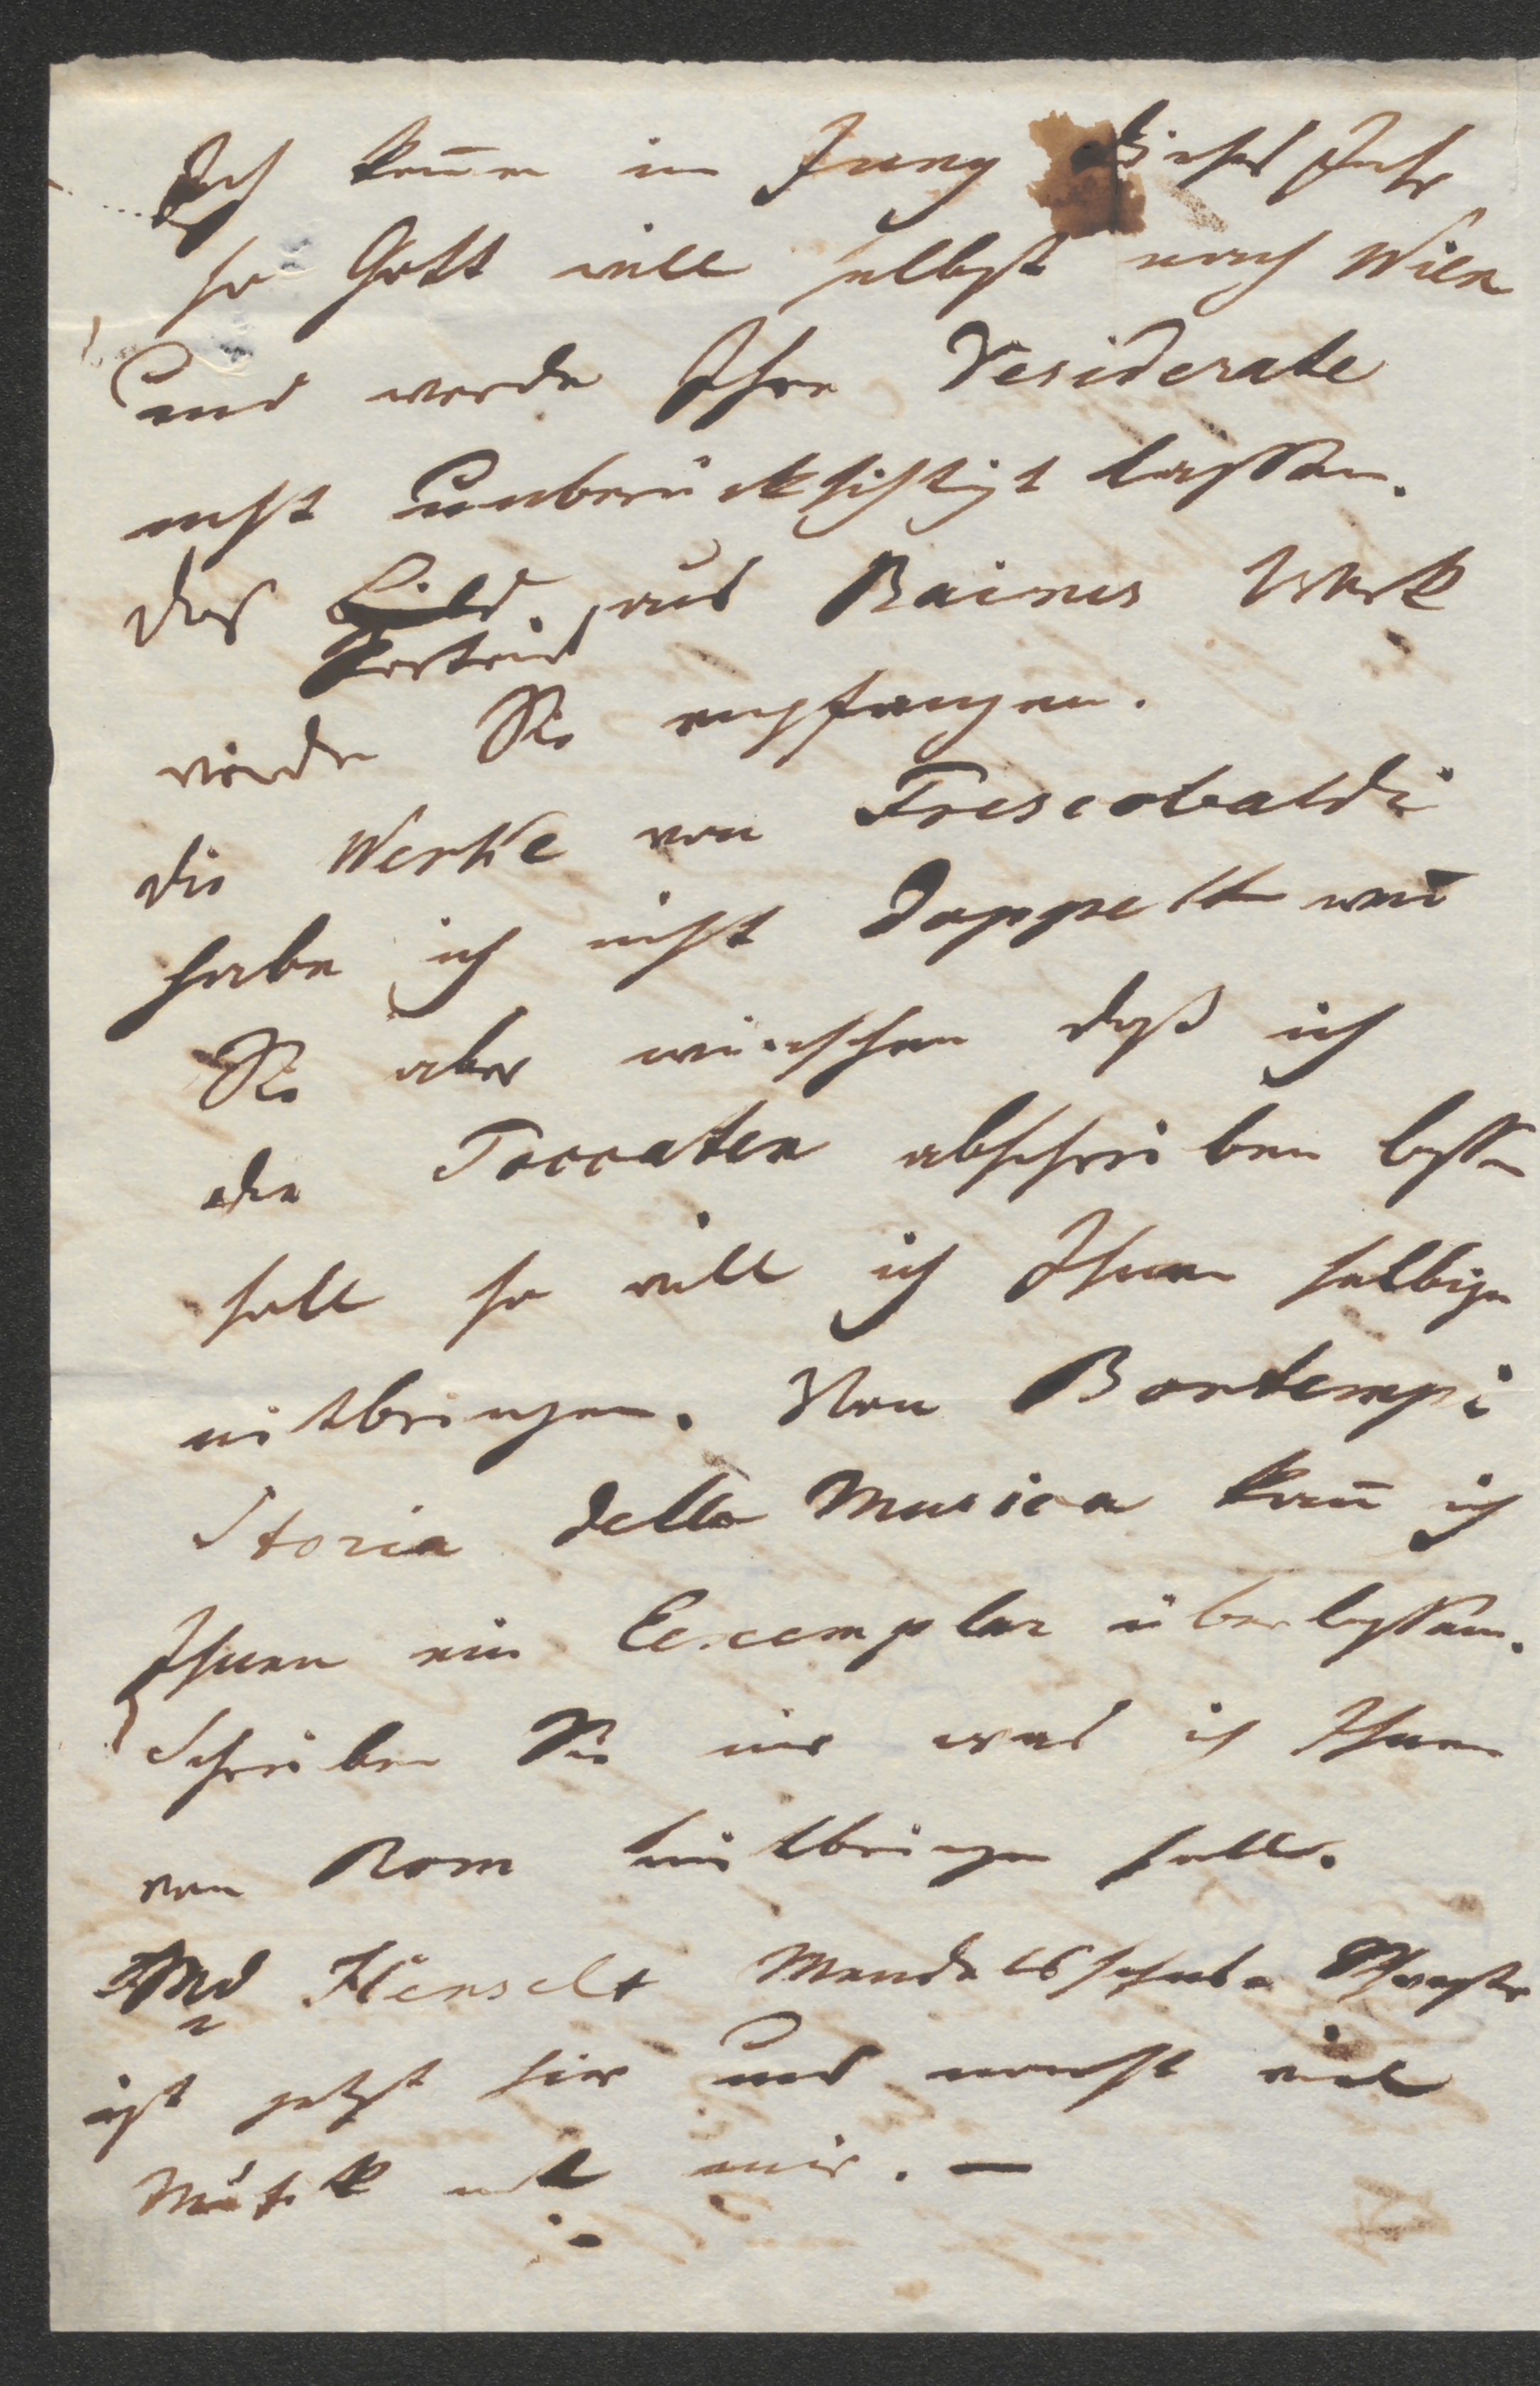 Ich kom̄e im Juny dieses Jahr
so Gott will selbst nach Wien
und werde Ihre Desiderate
nicht unberücksichtigt lassen.
Das Bild aus Bainis Werk
Portrait
werden Sie empfangen.
die Werke von Frescobaldi
habe ich nicht doppelt wen̄
Sie aber wünschen daß ich
die Toccaten abschreiben lassen
soll so will ich Ihnen selbige
mitbringen. Von Bontempi
Storia della Musica kan̄ ich
Ihnen ein Eexemplar überlassen.
Schreiben Sie mir was ich Ihnen
von Rom mitbringen soll.
Md Henselt Mendelssohns Schwester
ist jetzt hier und macht viel
Musik mit mir. —